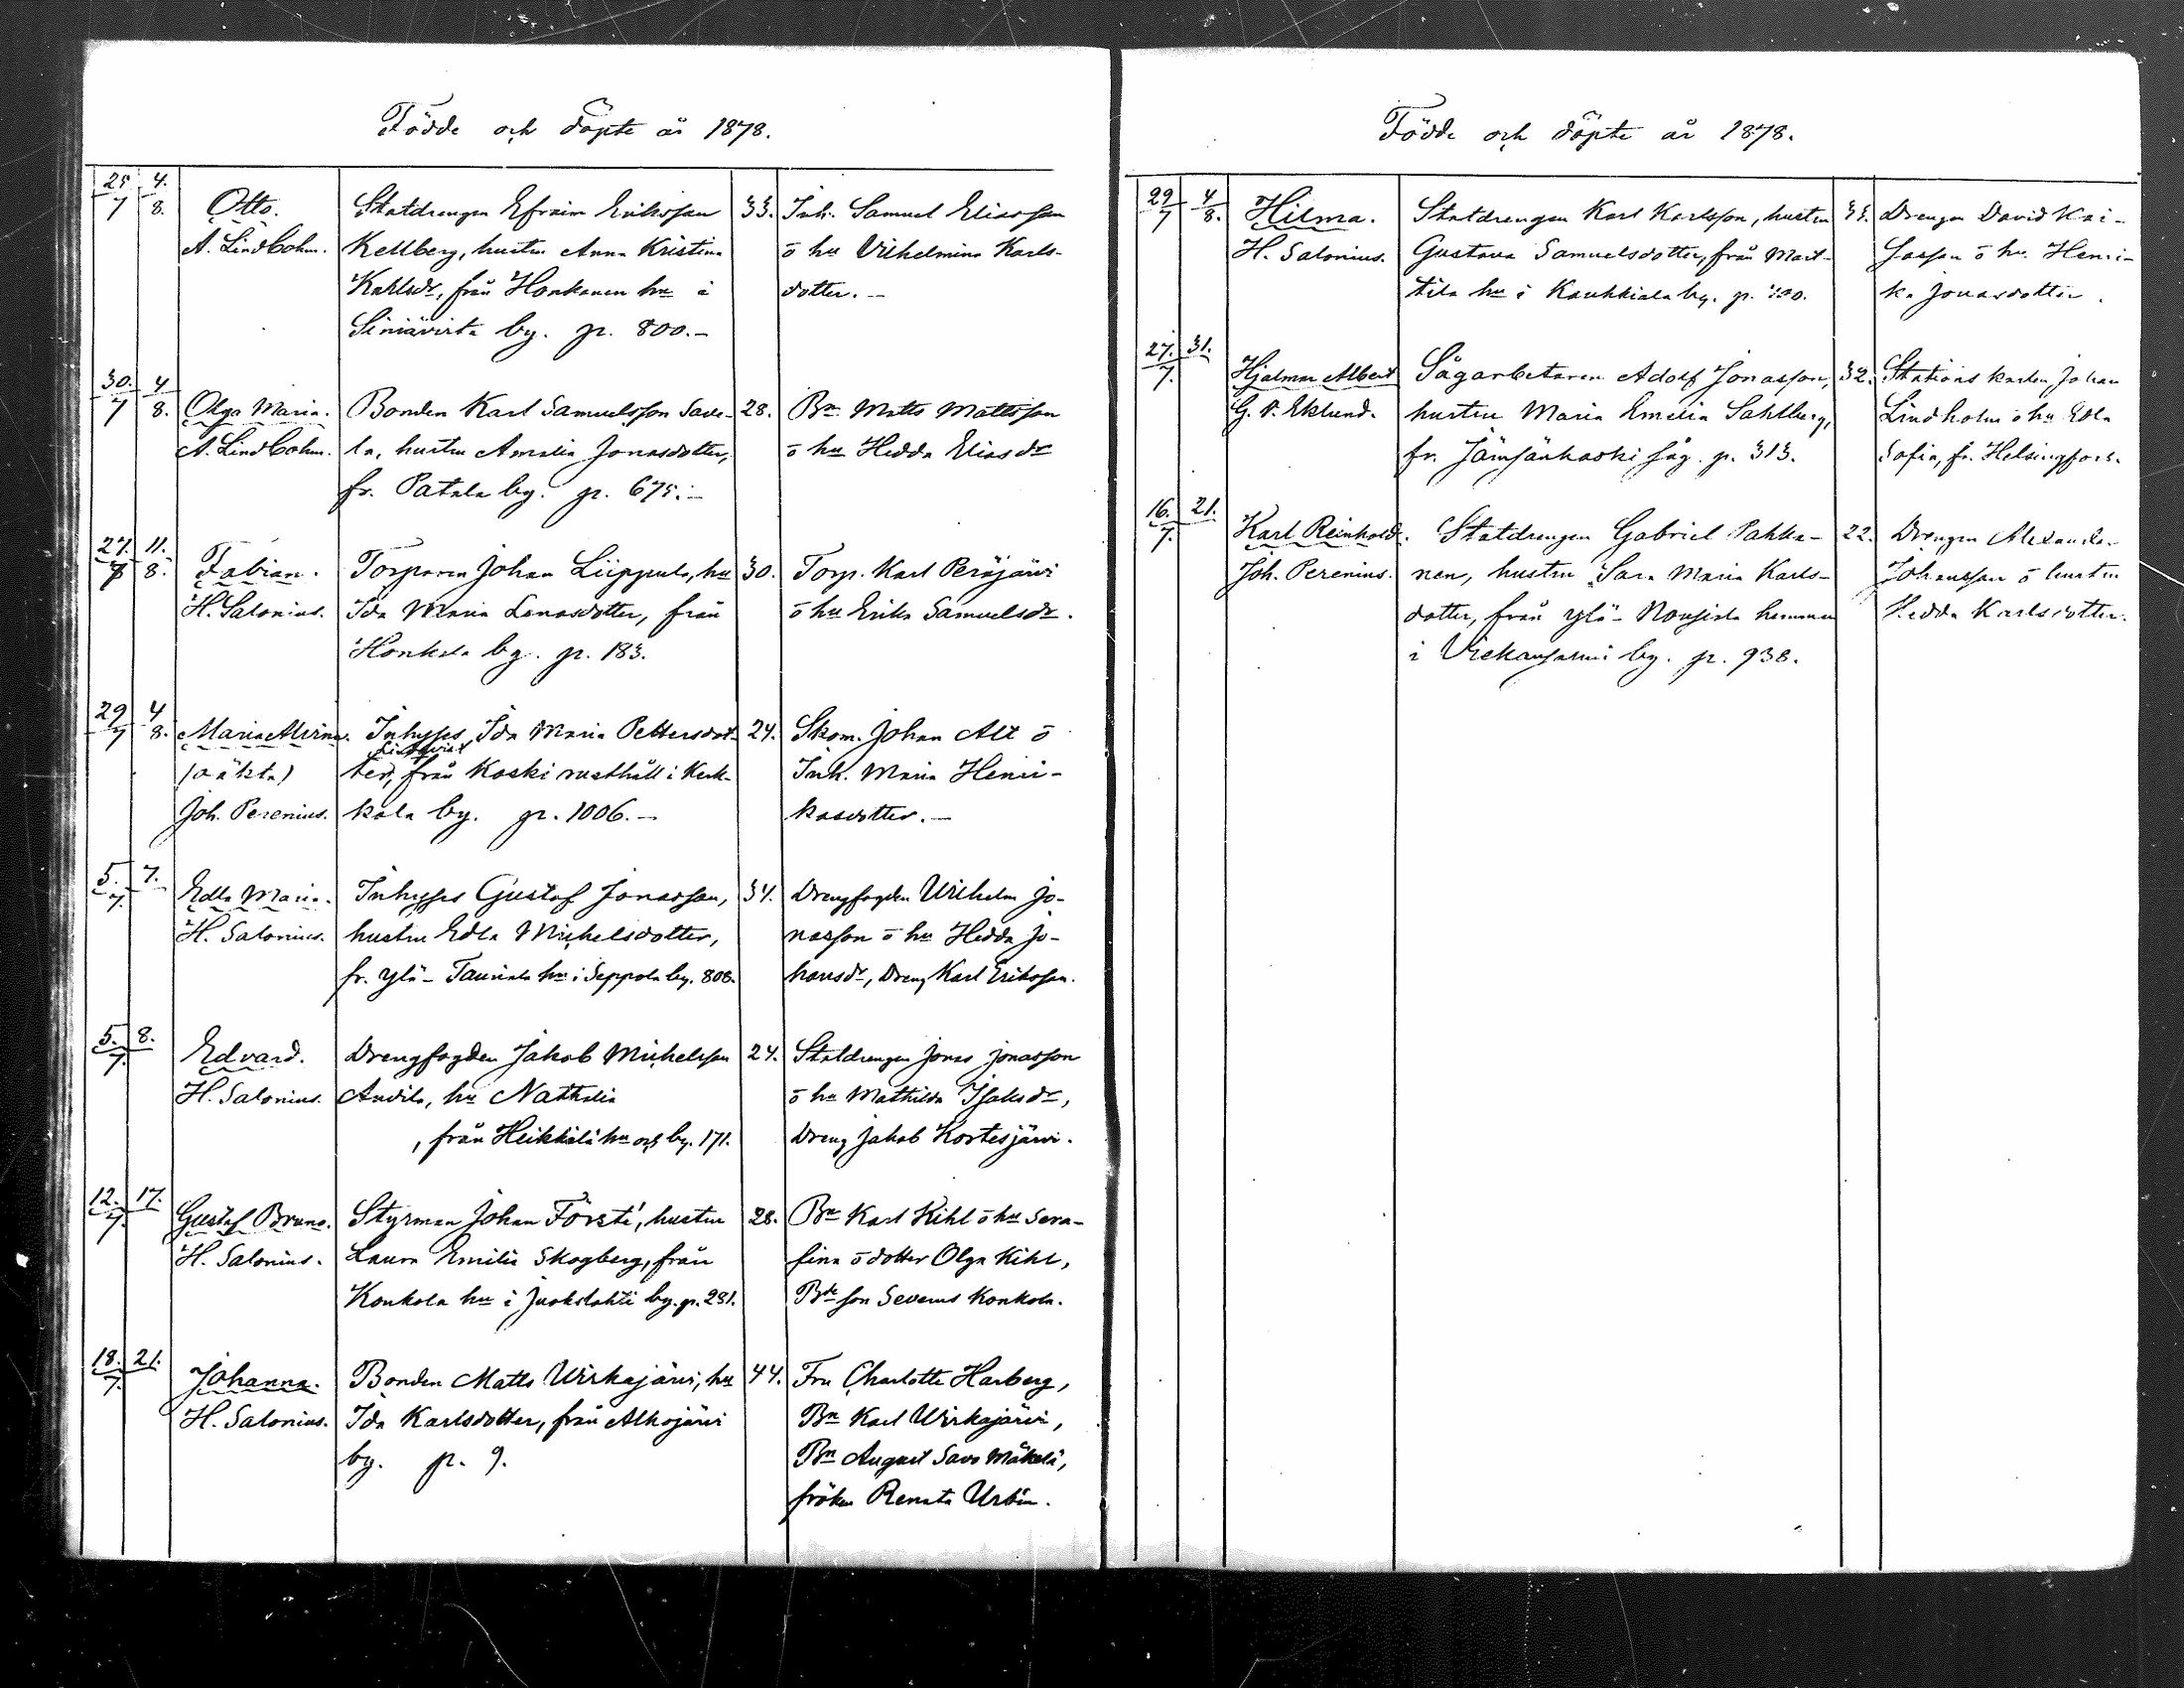 Födde och döpte år 1878.
25/7 4/8. Otto. Statdrengen Efraim Eriksson 33. Inh. Samuel Eliasson
A. Lindbohm. Kellberg, hustru Anna Kristina ō hu Vilhelmina Karls-
Karlsdr, från Honkanen hn i dotter.–
Siniävirta by. p. 800.–
30./7 4/8. Olga Maria. Bonden Karl Samuelsson Save- 28. Bn Matts Mattsson
A. Lindbohm. la, hustru Amalia Jonasdotter, ō hu Hedda Eliasdr
fr. Patala by. p. 675.–
27./7 11./8. Fabian. Torparen Johan Liippula, hu 30. Torp. Karl Peräjärvi
H. Salonius. Ida Maria Lenasdotter, från ō hu Erika Samuelsdr.
Honkola by. p. 183.
29/7 4/8. Maria Alvina. Inhyses Ida Maria Pettersdot- 24. Skom. Johan Alt ō
Lindqvist
(oäkta) ter, från Koski rusthåll i Kerk- Inh. Maria Henri-
Joh. Perenius. kola by. p. 1006.– kasdotter.–
5./7. 7. Edla Maria. Inhyses Gustaf Jonasson, 34. Drengfogden Wilhelm Jo-
H. Salonius. hustru Edla Michelsdotter, nasson ō hu Hedda Jo-
fr. Ylä-Tauriala hn i Seppola by. 808. hansdr, Dreng Karl Eriksson.
5./7. 8. Edvard. Drengfogden Jakob Michelsson 24. Statdrengen Jonas Jonasson
H. Salonius. Audila, hu Nathalia ō hu Mathilda Isaksdr,
, från Heikkilä hn och by. 171. Dreng Jakob Kortesjärvi.
12./7. 17. Gustaf Bruno. Styrman Johan Försti, hustru 28. Bn Karl Kihl ō hu Sera-
H. Salonius. Laura Emilia Skogberg, från fina ō dotter Olga Kihl,
Konkola hn i Juokslahti by. p. 281. Bde son Severus Konkola.
18./7. 21. Johanna. Bonden Matts Wirkajärvi, hu 44. Fru Charlotte Harberg,
H. Salonius. Ida Karlsdotter, från Alhojärvi Bn Karl Wirkajärvi,
by. p. 9. Bn August Savo Mäkelä,
fröken Renata Urbin.
Födde och döpte år 1878.
29/7 4/8. Hilma. Statdrengen Karl Karlsson, hustru 33. Drengen David Kai-
H. Salonius. Gustava Samuelsdotter, från Mart- sasson ō hu Henri-
tila hn i Kaukkiala by. p. ka Jonasdotter.
27./7. 31. Hjalmar Albert Sågarbetaren Adolf Jonasson, 32. Stations karlen Johan
G. V. Eklund. hustru Maria Emelia Sahlberg, Lindholm ō hu Edla
fr. Jämsänkoski såg. p. 313. Sofia, fr. Helsingfors.
16./7. 21. Karl Reinhold. Statdrengen Gabriel Pakka- 22. Drengen Alexander
Joh. Perenius. nen, hustru Sara Maria Karls- Johansson ō hustru
dotter, från Ylä-Nousiala hemman Hedda Karlsdotter.
i Vickanjarmi by. p. 938.